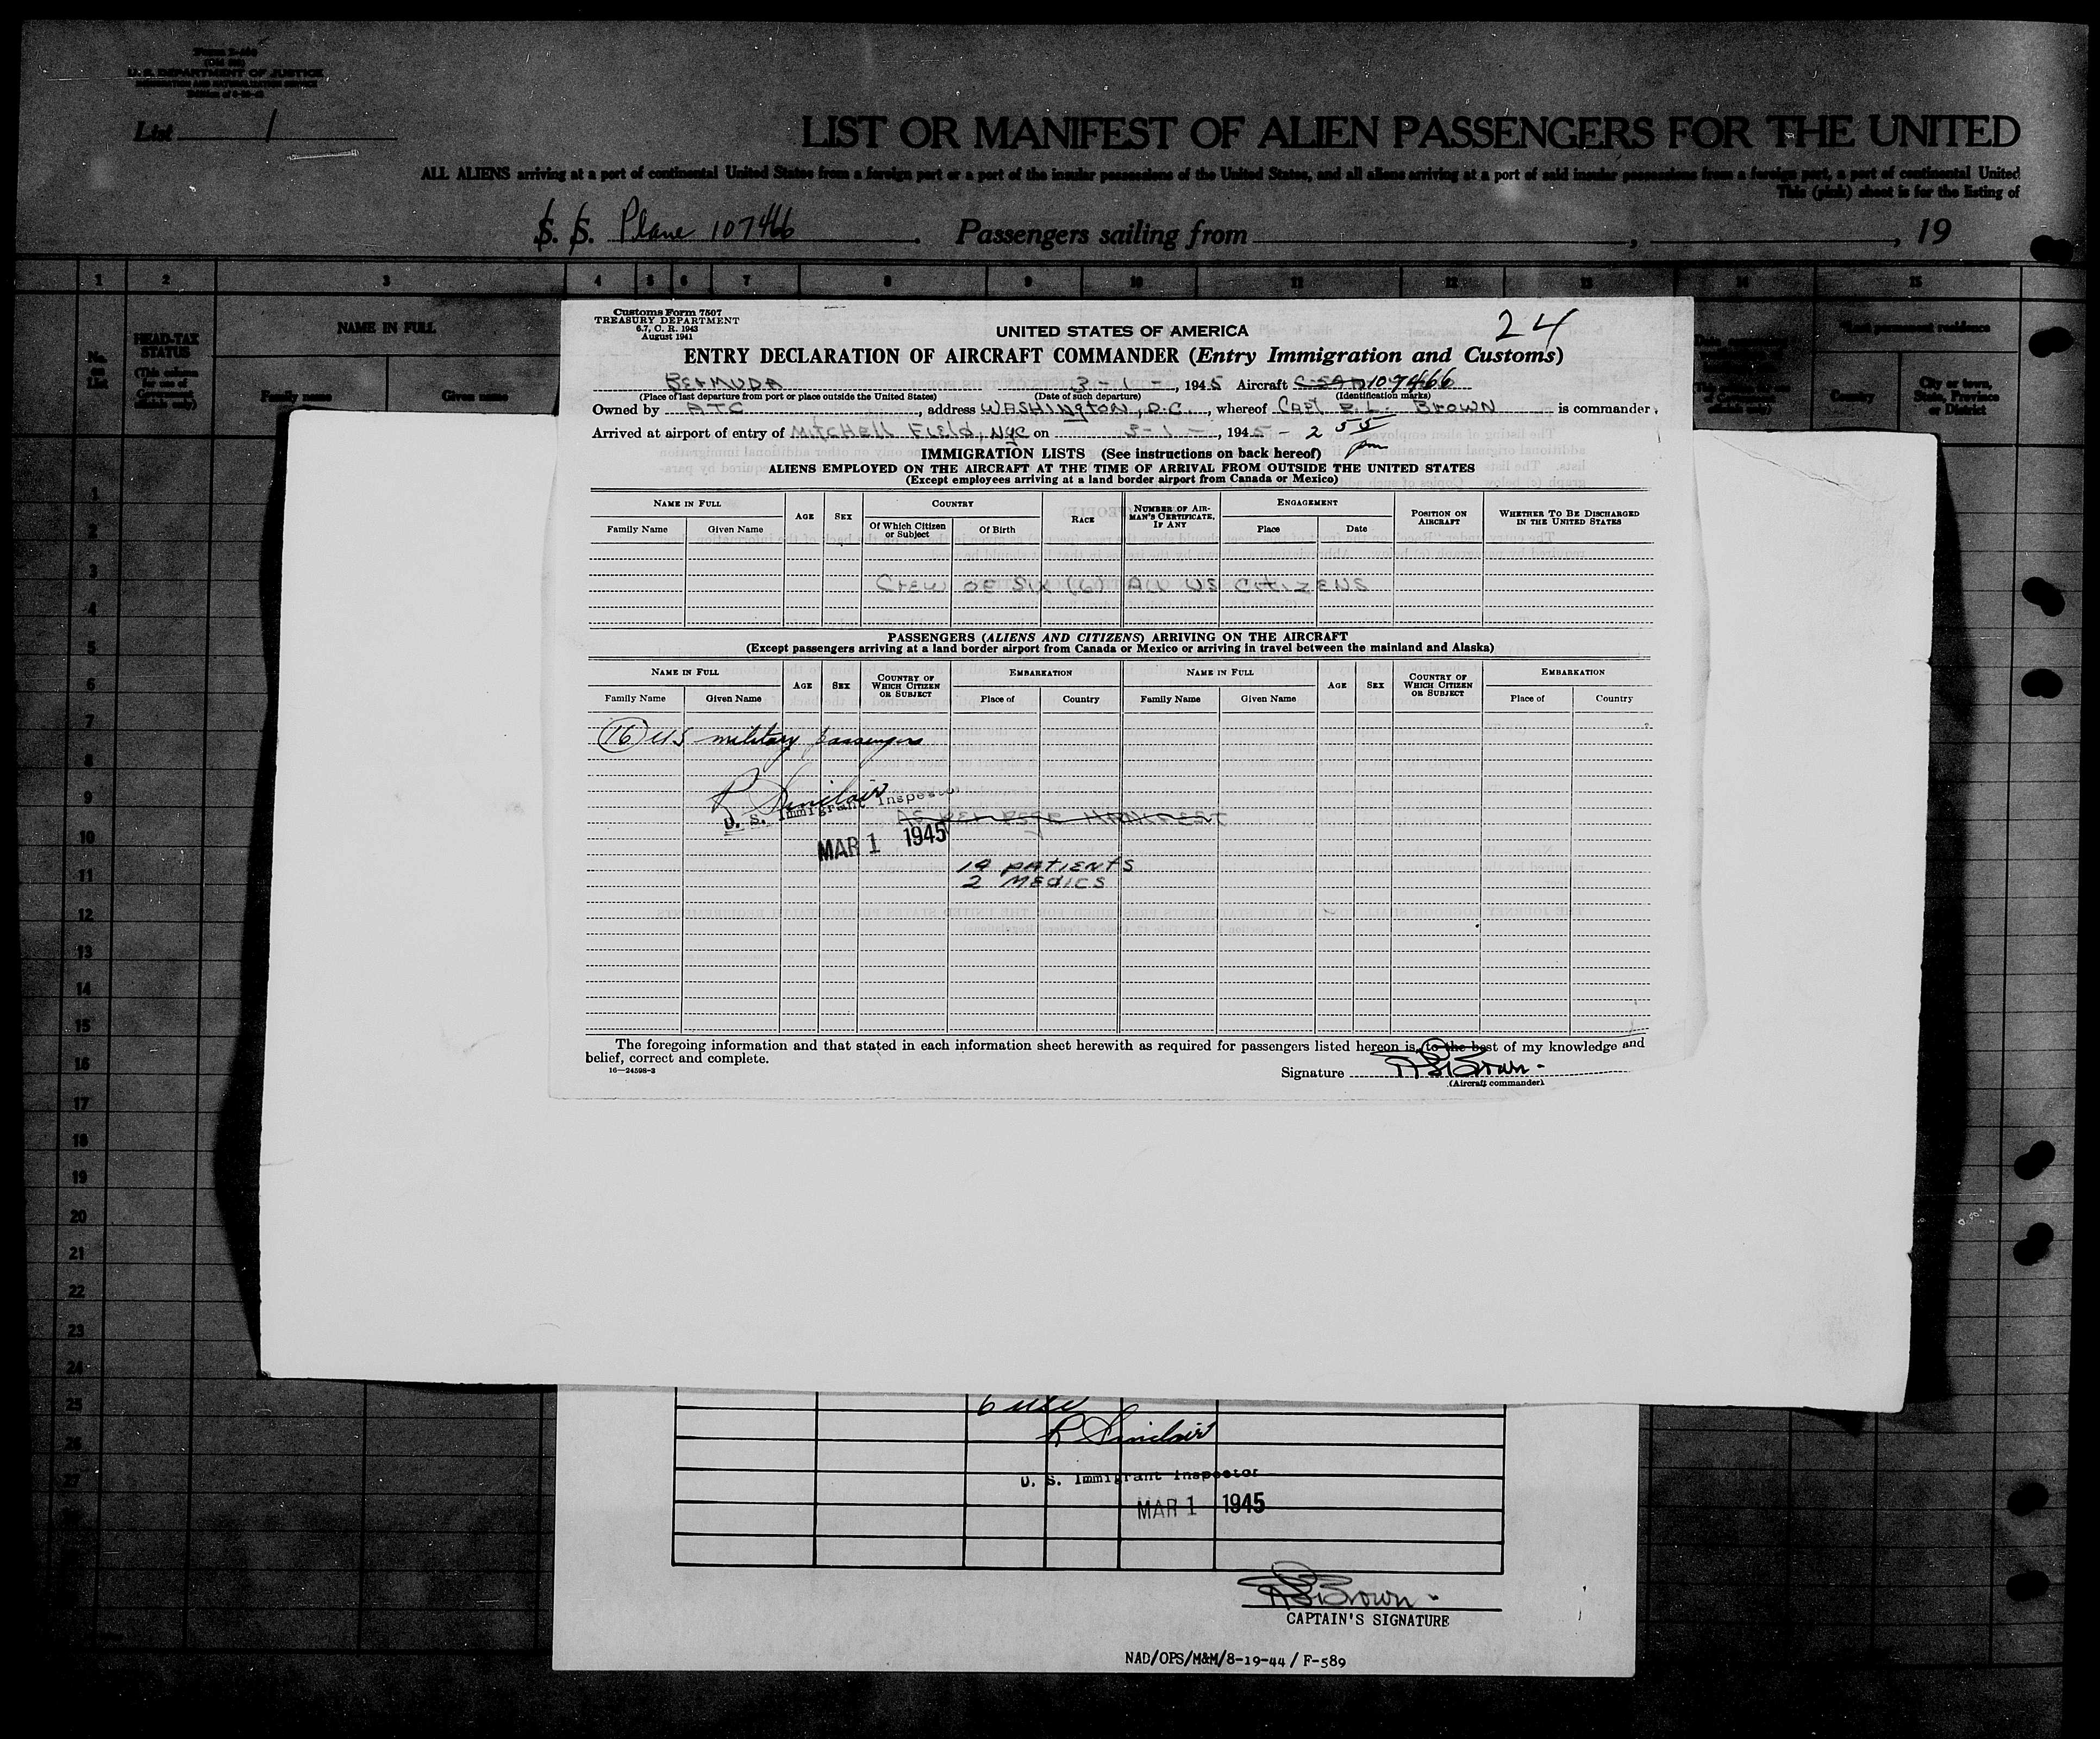 Form I-416
U. S. DEPARTMENT OF JUSTICE
IMMIGRATION AND NATURALIZATION SERVICE
List 1
LIST OR MANIFEST OF ALIEN PASSENGERS FOR THE UNITED
ALL ALIENS arriving at a port of continental United States from a foreign port or a port of the insular possessions of the United States, and all aliens arriving at a port of said insular possessions from a foreign port, a port of continental United
This (pink) sheet is for the listing of
S. S. Plane 107466 . Passengers sailing from , , 19
1 2 3 4 5 6 7 8 9 10 11 12 13 14 15
No. on List
HEAD-TAX STATUS
(This column for use of Government officials only)
NAME IN FULL
Family name Given name
Last permanent residence
Country City or town, State, Province or District
Customs Form 7507
TREASURY DEPARTMENT
6.7, C. R. 1943
August 1941
24
UNITED STATES OF AMERICA
ENTRY DECLARATION OF AIRCRAFT COMMANDER (Entry Immigration and Customs)
BERMUDA 3-1-, 1945 Aircraft 107466
(Place of last departure from port or place outside the United States) (Date of such departure) (Identification marks)
Owned by ATC, address WASHINGTON, D.C., whereof CAPT R. L. BROWN is commander.
Arrived at airport of entry of MITCHELL FIELD, NYC on 3-1-, 1945 - 2 55 pm
IMMIGRATION LISTS (See instructions on back hereof)
ALIENS EMPLOYED ON THE AIRCRAFT AT THE TIME OF ARRIVAL FROM OUTSIDE THE UNITED STATES
(Except employees arriving at a land border airport from Canada or Mexico)
NAME IN FULL AGE SEX COUNTRY RACE NUMBER OF AIRMAN'S CERTIFICATE, IF ANY ENGAGEMENT POSITION ON AIRCRAFT WHETHER TO BE DISCHARGED IN THE UNITED STATES
Family Name Given Name Of Which Citizen or Subject Of Birth Place Date
CREW OF SIX (6) ALL US CITIZENS
PASSENGERS (ALIENS AND CITIZENS) ARRIVING ON THE AIRCRAFT
(Except passengers arriving at a land border airport from Canada or Mexico or arriving in travel between the mainland and Alaska)
NAME IN FULL AGE SEX COUNTRY OF WHICH CITIZEN OR SUBJECT EMBARKATION NAME IN FULL AGE SEX COUNTRY OF WHICH CITIZEN OR SUBJECT EMBARKATION
Family Name Given Name Place of Country Family Name Given Name Place of Country
16 US military passengers
R Sinclair
U. S. Immigrant Inspector
AS PER MANIFEST
MAR 1 1945
14 PATIENTS
2 MEDICS
The foregoing information and that stated in each information sheet herewith as required for passengers listed hereon is, to the best of my knowledge and
belief, correct and complete.
16—24598-3
Signature R L Brown
(Aircraft commander)
1
2
3
4
5
6
7
8
9
10
11
12
13
14
15
16
17
18
19
20
21
22
23
24
25
26
27
6 USC
R Sinclair
U. S. Immigrant Inspector
MAR 1 1945
R L Brown
CAPTAIN'S SIGNATURE
NAD/OPS/M&M/8-19-44 / F-589